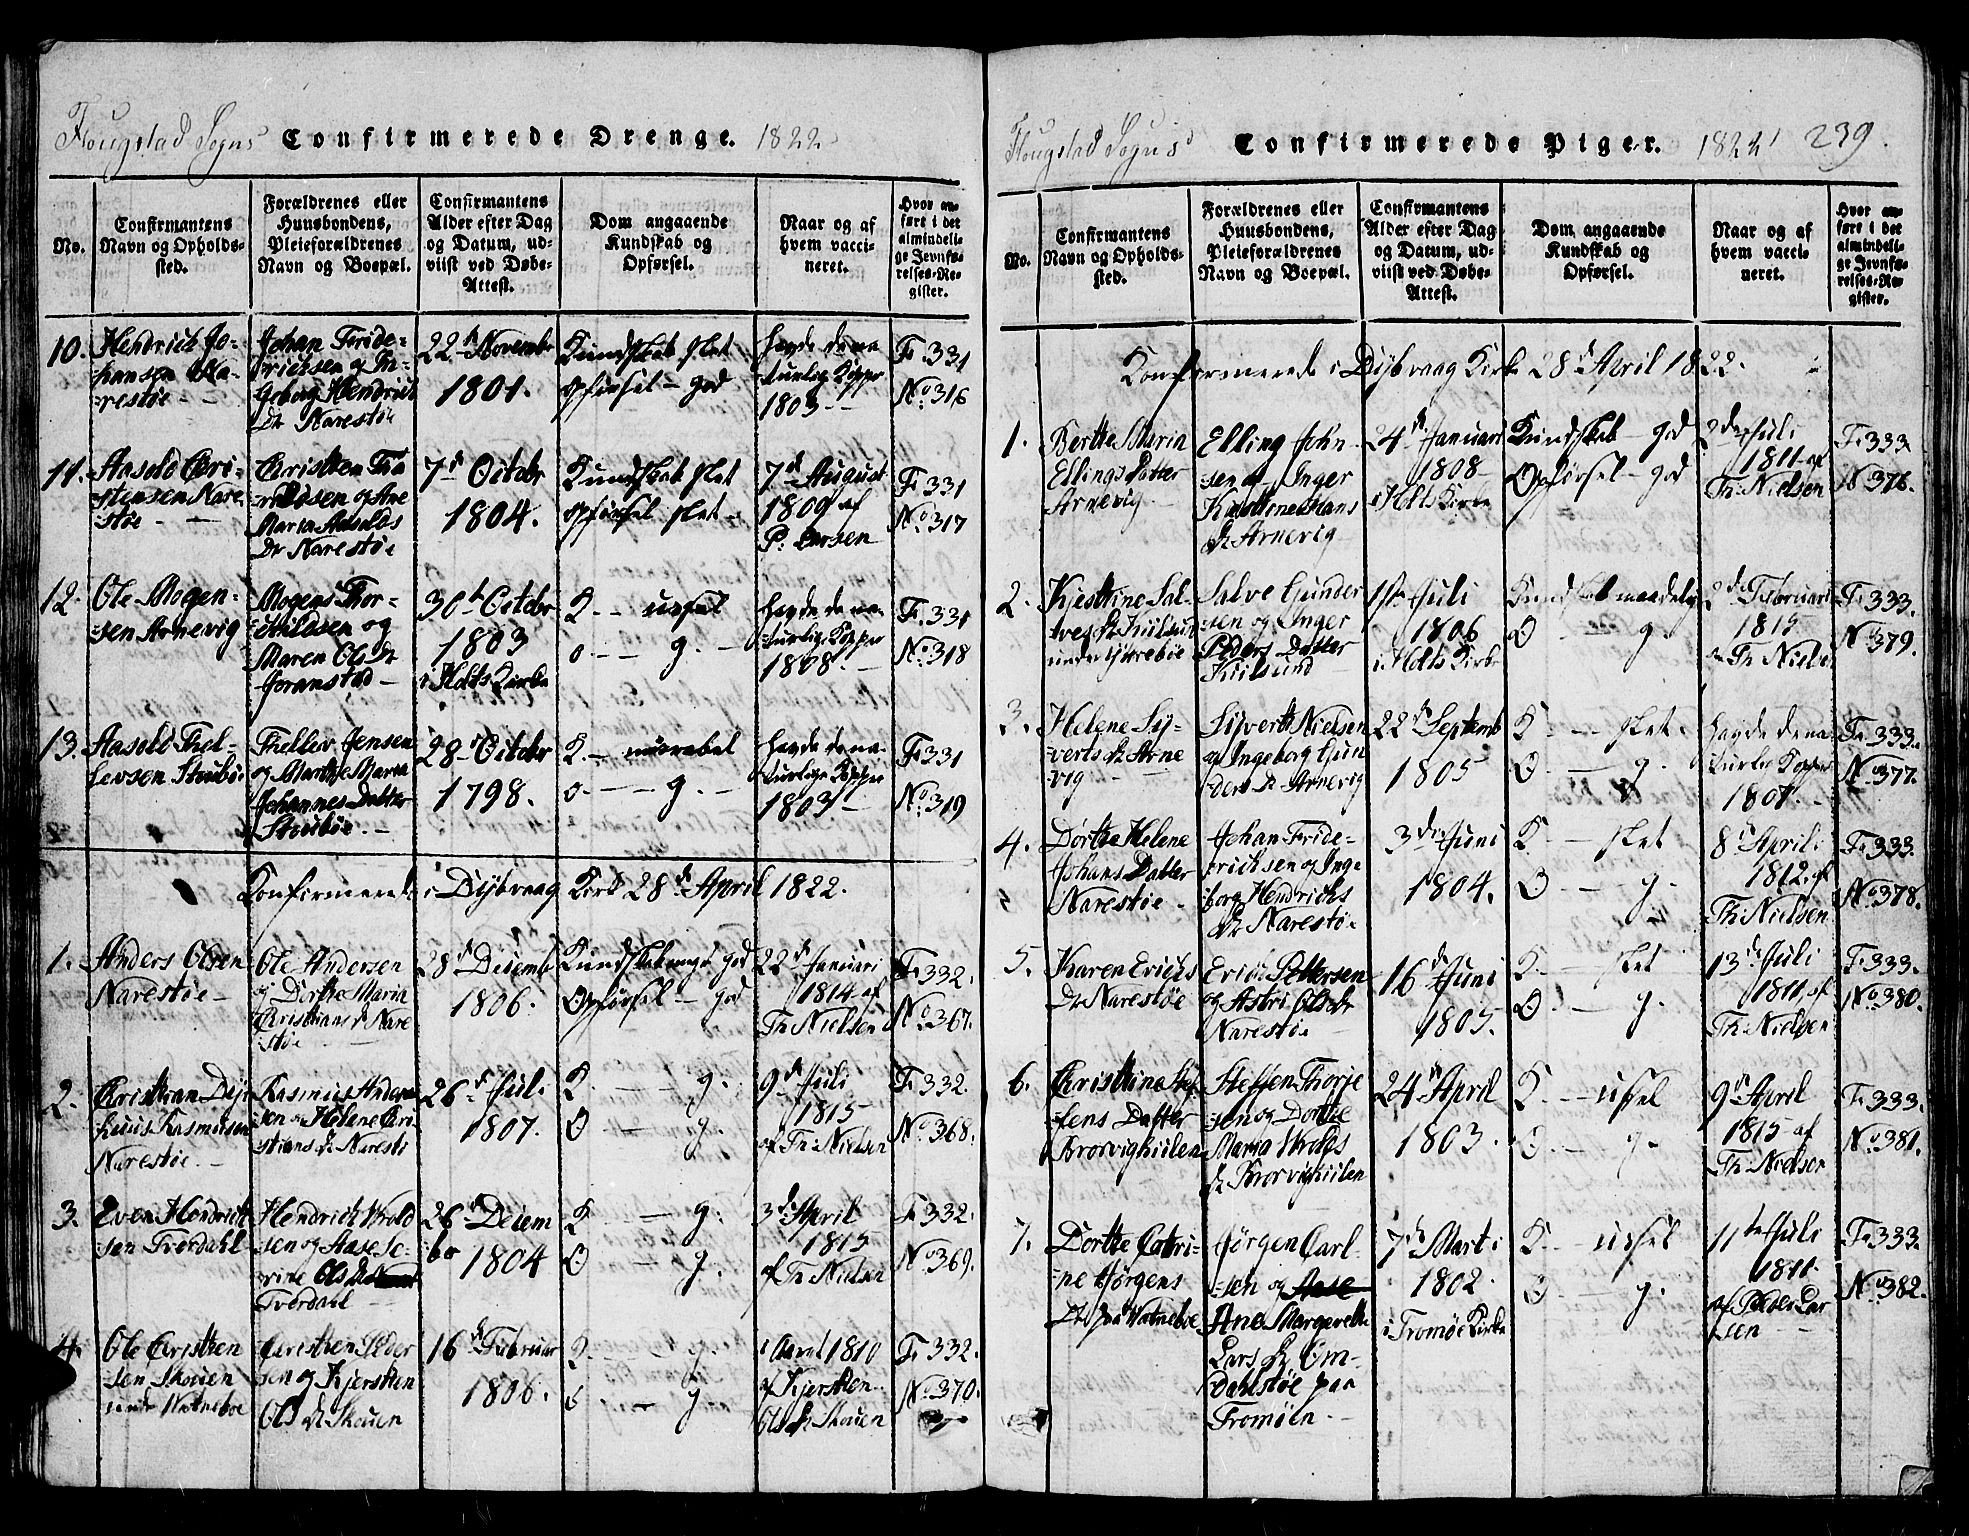 Flougstad Sogns Confirmerede Drenge. 1822
No.
Confirmantens
Navn og Opholds-
sted.
Forældrenes eller
Huusbondens,
Pleieforældrenes
Navn og Boepæl.
Confirmantens
Alder efter Dag
og Datum, ud-
viist ved Døbe-
Attest.
Dom angaaende
Kundskab og
Opførsel.
Naar og af
hvem vacci-
neret.
Hvor an-
ført i det
almindeli-
ge Jevnfø-
relses-Re-
gister.
10.
Hendrich Jo-
hansen Na-
restøe
Johan Fride-
richsen og In-
geborg Hendrichs
Dr Narestøe
22d Novembr
1801.
Kundskab slet
Opførsel - god
havde de na-
turlige Kopper
1803
F. 331
No 316
11.
Aasold Chri-
stensen Nare-
støe
Christen
og Ane
Maria Aasolds
Dr Narestøe
7d Octobr
1804.
Kundskab slet
Opførsel slet
7d August
1809 af
P. Larsen
F. 331
No 317
12.
Ole Mogen-
sen Arnevig
Mogens Thor-
kildsen og
Maren Ols Dr
Goranstad
30d Octobr
1803
i Holts Kirke
K. — ussel
O. — g.
havde de na-
turlige Kopper
1808.
F. 331
No 318
13.
Aasold Thel-
lefsen Stuebøe
Thellev Jensen
og Marthe Maria
Johannes Datter
Stuebøe
28d Octobr
1798.
K. — miserabel
O. — g.
havde de na-
turlige Kopper
1803
F. 331
No 319
Konfirmerede i Dybvaag Kirke 28d April 1822.
1.
Anders Olsen
Narestøe
Ole Andersen
og Dorthe Maria
Christians Dr Nare-
støe
28d Decemb
1806.
Kundskab god
Opførsel - god
22d Januari
1814 af
Th. Nielsen
F. 332.
No 367.
2.
Christian
Rasmusen
Narestøe
Rasmus Ander-
sen og Helene Chri-
stians Dr Narestø
26d Juli
1807.
K. — g.
O — g.
9d Juli
1815
af Th. Nielsen
F. 332.
No 368.
3.
Even Hendrich-
sen Tverdahl
Hendrich Wold-
sen og Aase Se-
rine Ols Dr
Tverdahl
26d Decem-
ber
1804
K — g.
O — g.
3d April
1815
af Th. Nielsen
F. 332.
No 369.
4.
Ole Christen-
sen Skouen
under Watneboe
Christen Peder-
sen og Kjersten
Ols Dr Skouen
16d Februar
1806.
K. — g.
O — g
i Aaret 1810
af Kjersten
Ols Dr Skouen
F. 332.
No 370.
Flougstad Sogns Confirmerede Piger. 1822 239.
No.
Confirmantens
Navn og Opholds-
sted.
Forældrenes eller
Huusbondens,
Pleieforældrenes
Navn og Boepæl.
Confirmantens
Alder efter Dag
og Datum, ud-
viist ved Døbe-
Attest.
Dom angaaende
Kundskab og
Opførsel.
Naar og af
hvem vacci-
neret.
Hvor an-
ført i det
almindeli-
ge Jevnfø-
relses-Re-
gister.
Konfirmerede i Dybvaag Kirke 28d April 1822.
1.
Berthe Maria
Ellings Datter
Arnevig
Elling John-
sen og Inger
Kirstine Hans
Dr Arnevig
24d Januari
1808
i Holts Kirke
Kundskab - god
Opførsel - god
2den Juli
1811 af
Th. Nielsen
F. 333
No 376.
2.
Kistrine Sal-
ves Dr Kiilsund
under Gjerrebøe
Salve Gunder-
sen og Inger
Peders Datter
Kiilsund
1ste Juli
1806
i Holts Kirke
Kundskab maadelig
O — g.
2d Februari
1815
af Th. Nielse
F. 333.
No 379.
3.
Helene Sy-
verts Dr Arne-
vig
Syvert Nielsen
og Ingeborg Gun-
ders Dr Arnevig
22d Septemb
1805
K — slet.
O. — g.
havde de na-
turlie Kopper
1807.
F. 333.
No 377.
4.
Dorthe Helene
Johans Datter
Narestøe
Johan Fride-
richsen og Inge-
borg Hendrichs
Dr Narestøe
3die Juni
1804.
K — slet
O — g.
8d April
1812. af
Th. Nielsen
F. 333.
No 378.
5.
Karen Erichs
Dr Narestøe
Erich Pettersen
og Astri Ols Dr
Narestøe
16d Juni
1805.
K. — slet
O. — g.
13d Juli
1811, af
Th. Nielsen
F. 333.
No 380.
6.
Christine Stef-
fens Datter
Brorvigkiilen
Steffen Thorje-
sen og Dorthe
Maria
Dr Brorvigkiilen
24d April
1803.
K. — ussel
O. — g.
9d April
1815 af
Th. Nielsen
F. 333.
No 381.
7.
Dorthe Cathri-
ne Jørgens
Dr fra Watneboe
Jørgen Carl-
sen og Aase
Ane Margrethe
Lars Dr Om-
dahlstøe paa
Tromøen.
7d Marti
1802.
i Tromøe Kirke
K. — ussel
O. — g.
11te Juli
1811.
af Peder Lar-
sen
F. 333.
No 382.